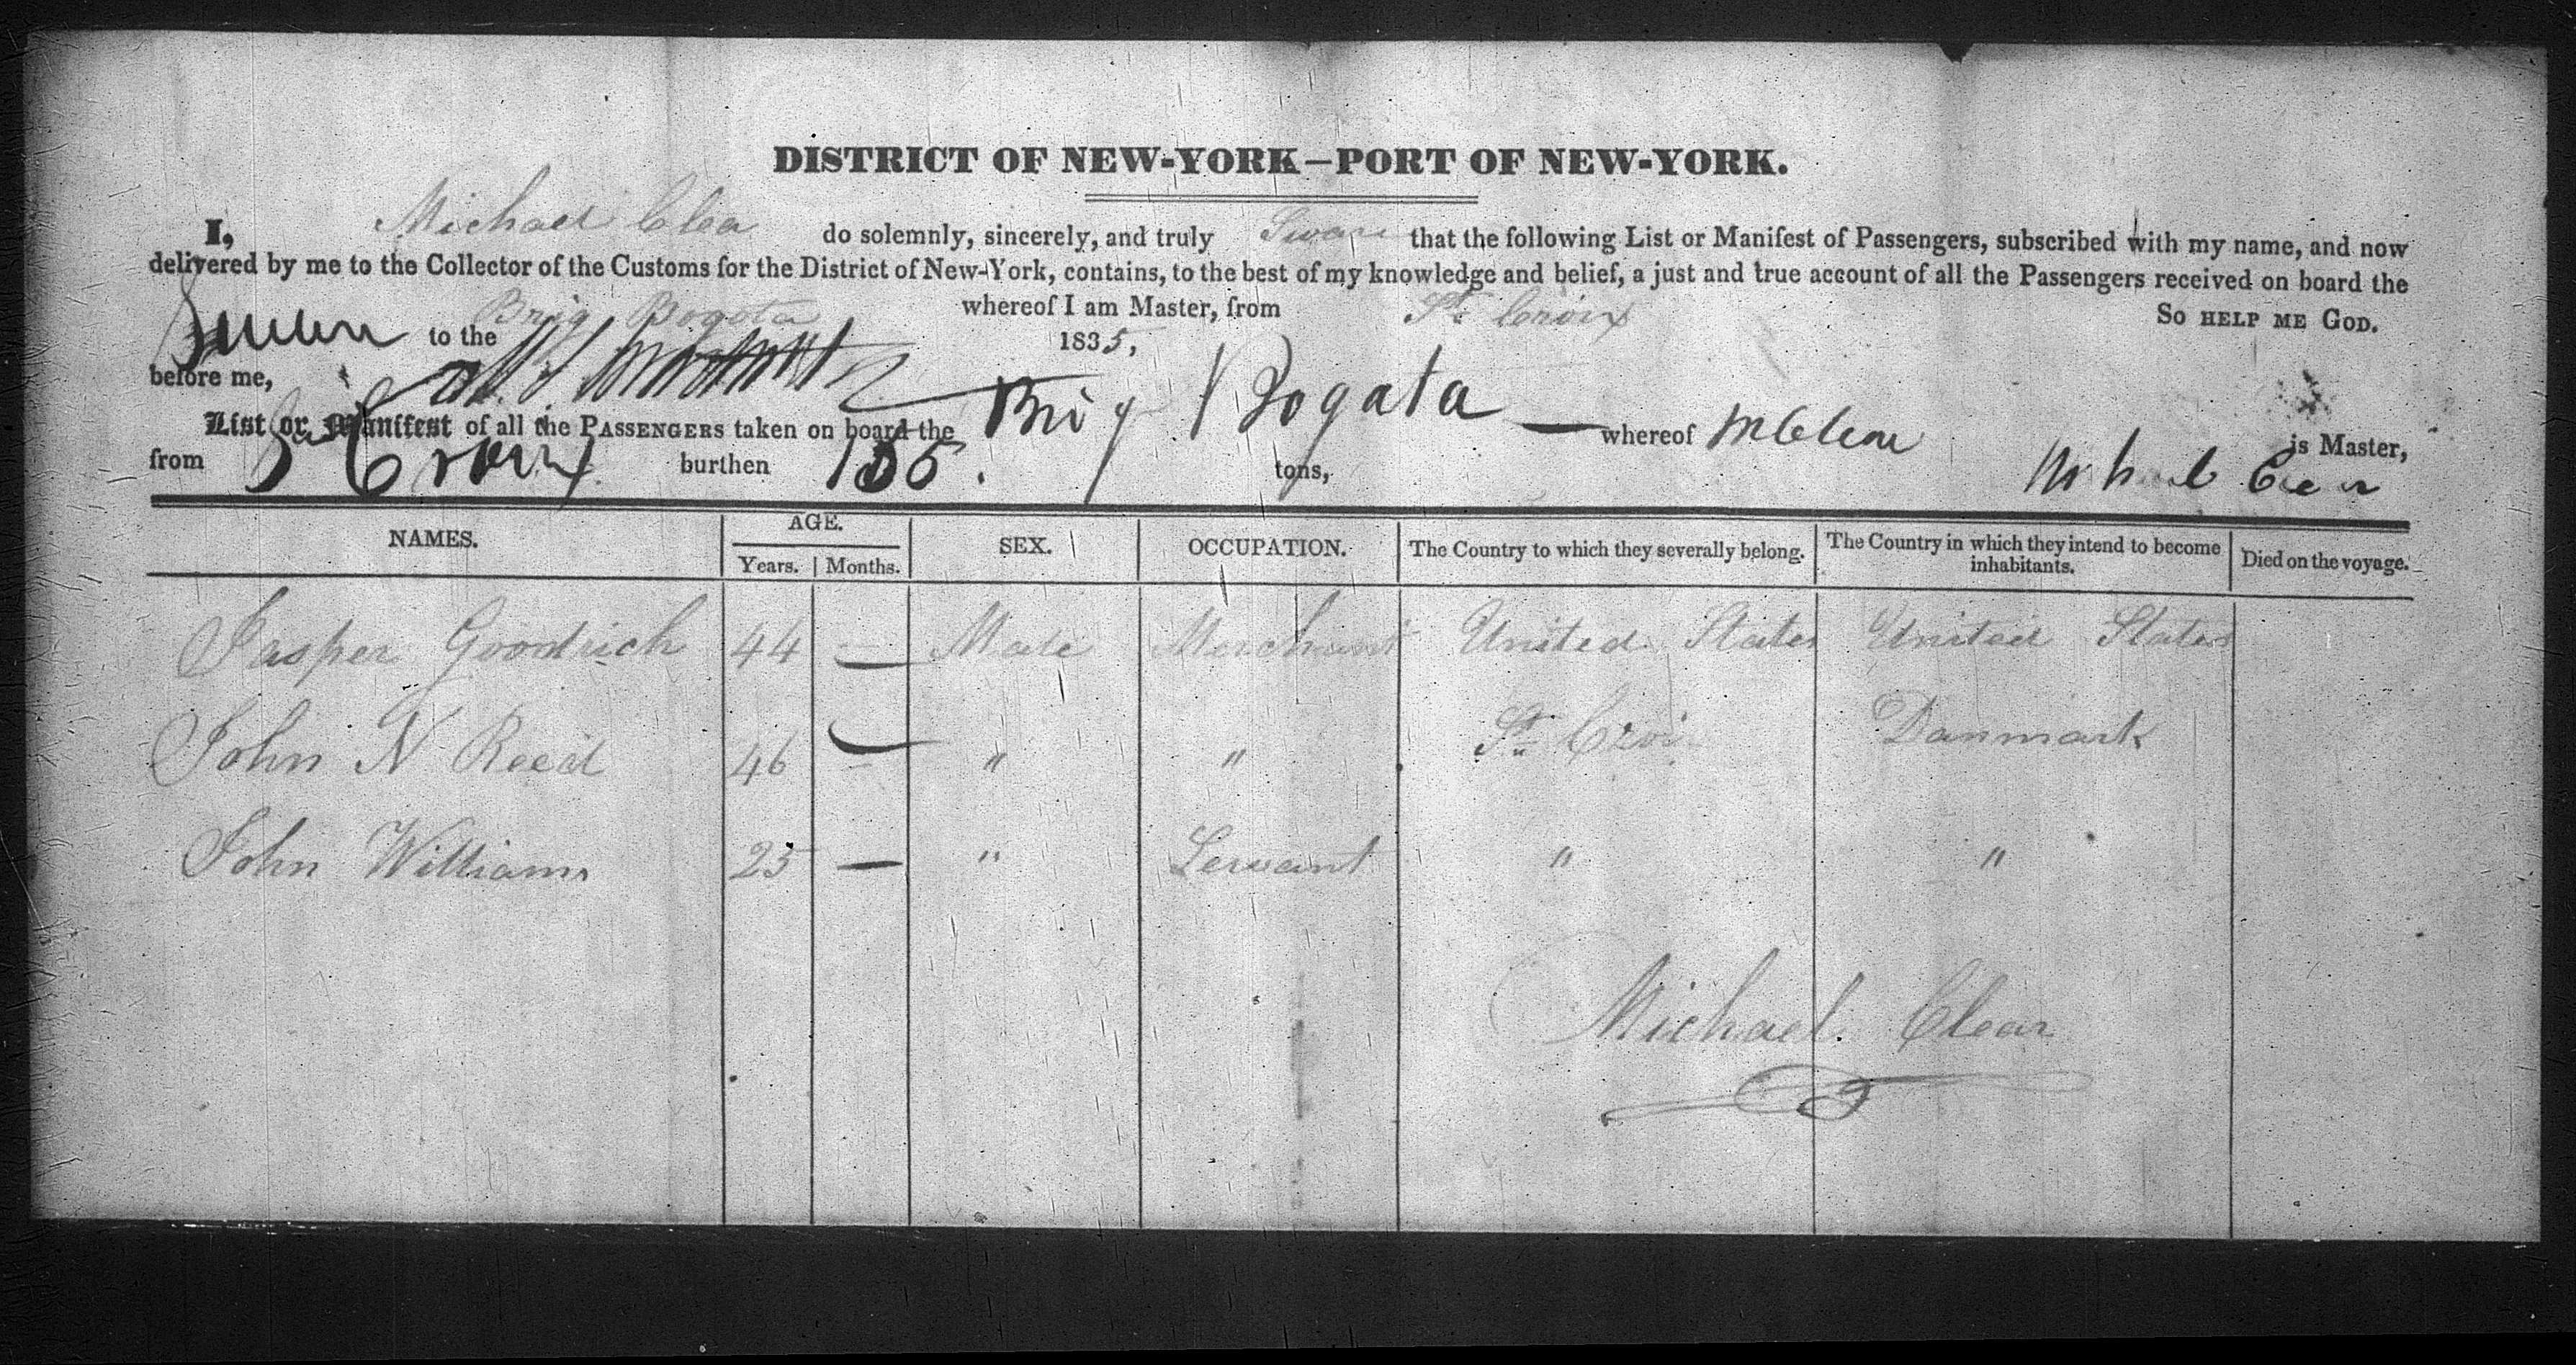 DISTRICT OF NEW-YORK—PORT OF NEW-YORK.
I, Michael Clea do solemnly, sincerely, and truly Swear that the following List or Manifest of Passengers, subscribed with my name, and now
delivered by me to the Collector of the Customs for the District of New-York, contains, to the best of my knowledge and belief, a just and true account of all the Passengers received on board the
Brig Bogota whereof I am Master, from St Croix So HELP ME GOD.
to the 1835,
before me,
List or Manifest of all the PASSENGERS taken on board the Brig Bogata — whereof M Clear is Master,
from St Croix burthen 155. tons, Michael Clear
NAMES. AGE. SEX. OCCUPATION. The Country to which they severally belong. The Country in which they intend to become inhabitants. Died on the voyage.
Years. Months.
Jasper Goodrich 44 — Male Merchant United States United States
John N Reed 46 — " " St Croi Danmark
John Williams 25 — " Servant " "
Michael. Clear